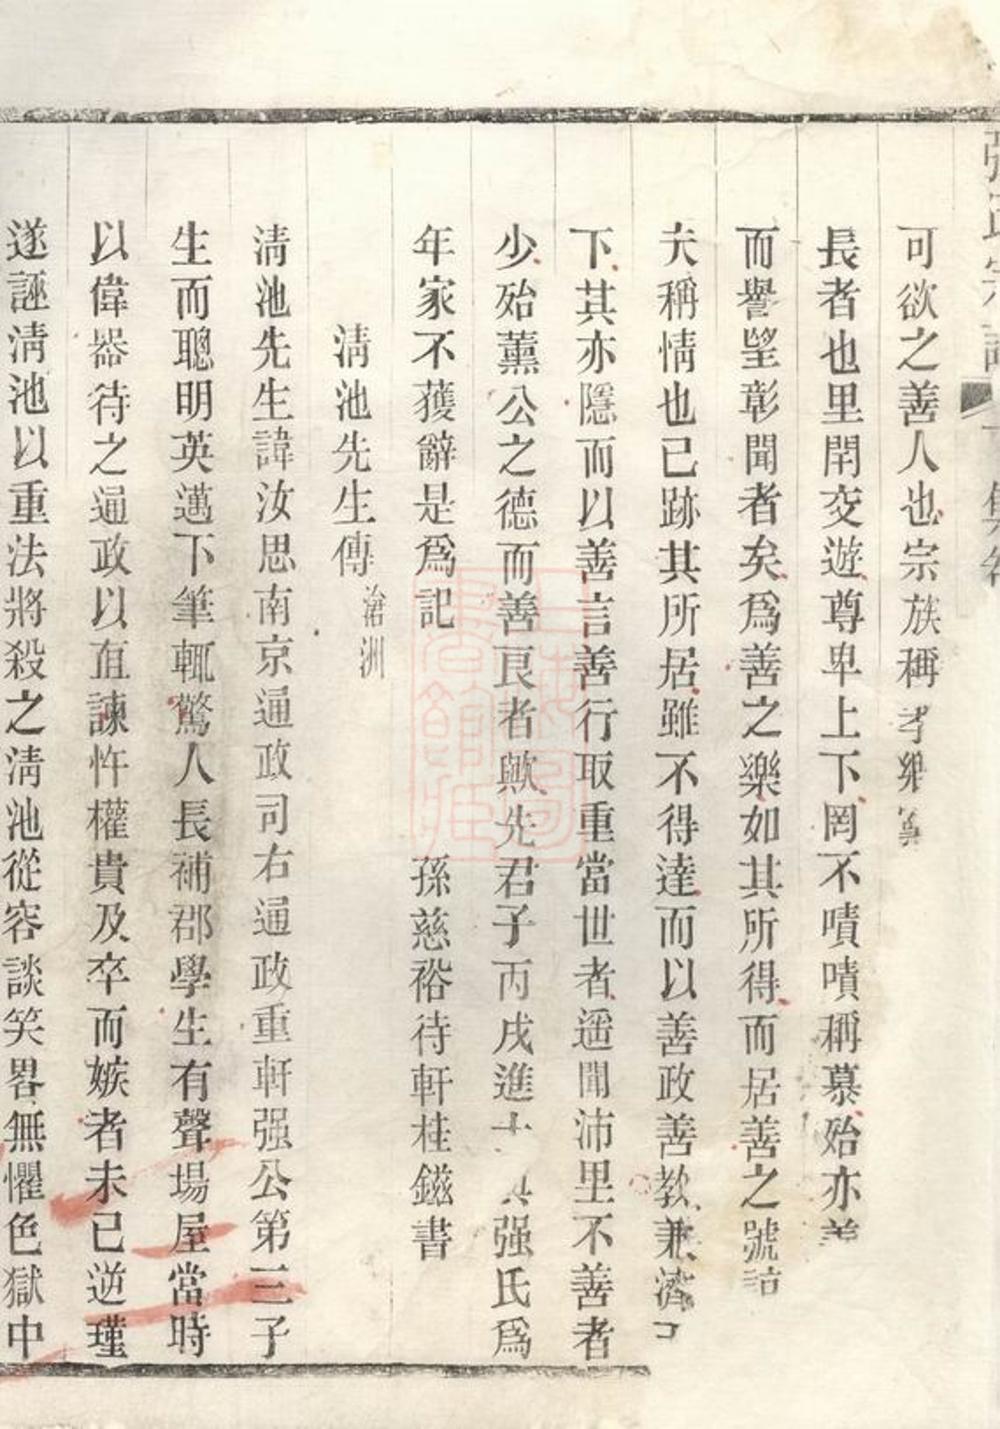 可欲之善人也宗族稱孝鄉黨
長者也里閈交遊尊卑上下罔不嘖嘖稱慕殆亦善
而譽望彰聞者矣爲善之樂如其所得而居善之號詎
夫稱情也已跡其所居雖不得達而以善政善教兼濟
下其亦隱而以善言善行取重當世者遥聞沛里不善者
少殆薰公之德而善良者歟先君子丙戌進士與强氏爲
年家不獲辭是爲記　孫慈裕待軒桂鎡書
清池先生傳　滄洲
清池先生諱汝思南京通政司右通政重軒强公第三子
生而聰明英邁下筆輒驚人長補郡學生有聲場屋當時
以偉器待之通政以直諫忤權貴及卒而嫉者未已逆瑾
遂誣清池以重法將殺之清池從容談笑畧無懼色獄中